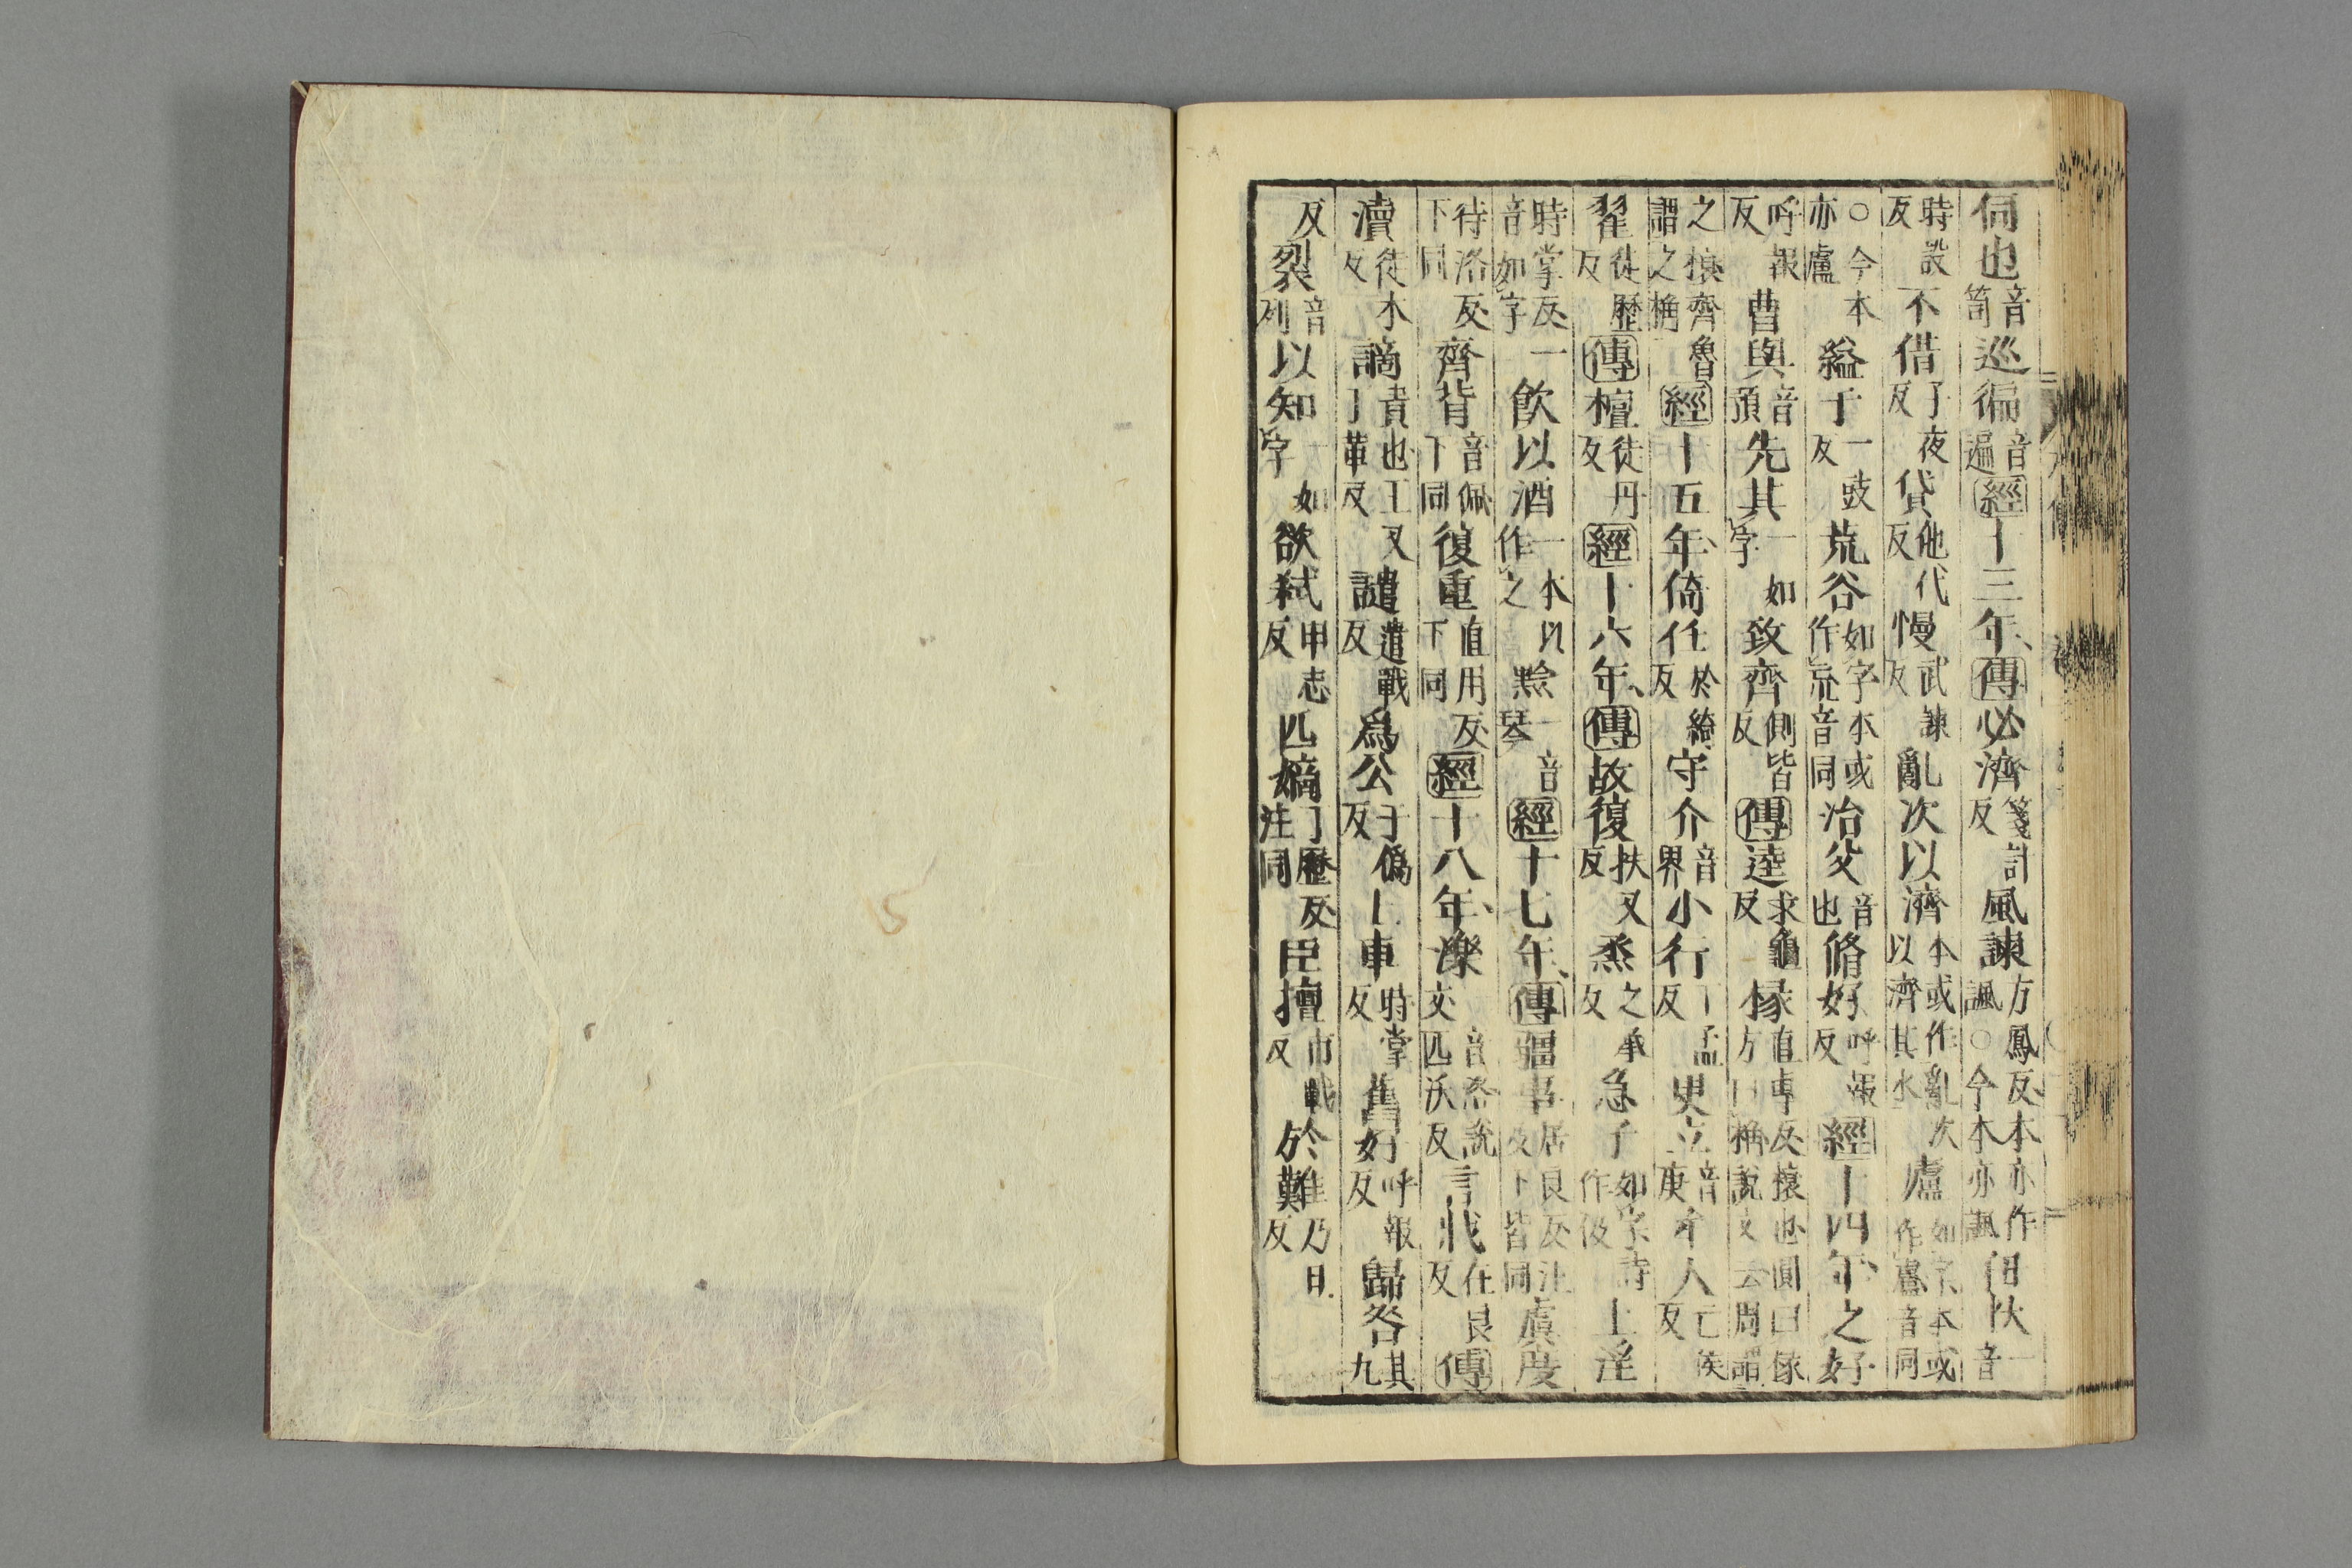 伺也音笥巡徧音遍經十三年、傳必濟箋計反風諫方鳳反本亦作諷○今本亦諷忸忕一音
時設反不借子夜反貸他代反慢武諫反亂次以濟本或作亂次以濟其水廬如字本或作慮音同
○今本亦廬縊于一豉反荒谷如字本或作㡃音同治父音也脩好呼報反經十四年、之好
呼報反曹與音預先其一如字致齊側皆反傳逵求龜反椽直專反榱也圓曰椽方曰桷說文云周謂
之榱齊魯謂之桷經十五年、倚任於綺反守介音界小行下孟反更立音庚牟人亡侯反
翟徒歷反傳檀徒丹反經十六年、傳故復扶又反烝之承反急子如字詩作伋上淫
時掌反一音如字飲以酒一本以作之黔一音琴經十七年、傳疆事居良反注及下皆同虞度
待洛反下同齊背音佩下同復重直用反下同經十八年、濼音洛說文匹沃反言戕在良反傳
瀆徒木反謫責也王又丁革反譴遣戰反爲公于僞反上車時掌反舊好呼報反歸咎其九
反裂音列以知一如字欲弒申志反匹嫡丁歷反注同臣擅市戰反於難乃旦反